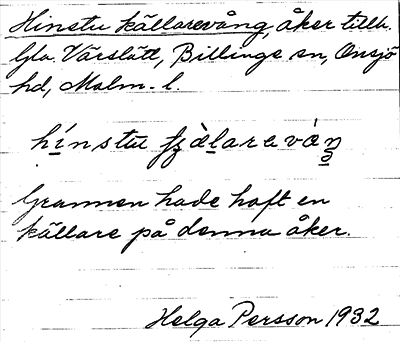 Hinstu källarevång, åker tillh.
Gla. Vårslätt, Billinge sn, Onsjö
hd, Malm. l.
hínstu
Grannen hade haft en
källare på denna åker.
Helga Persson 1932